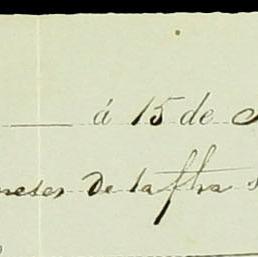 á 15 de
meses de la fha